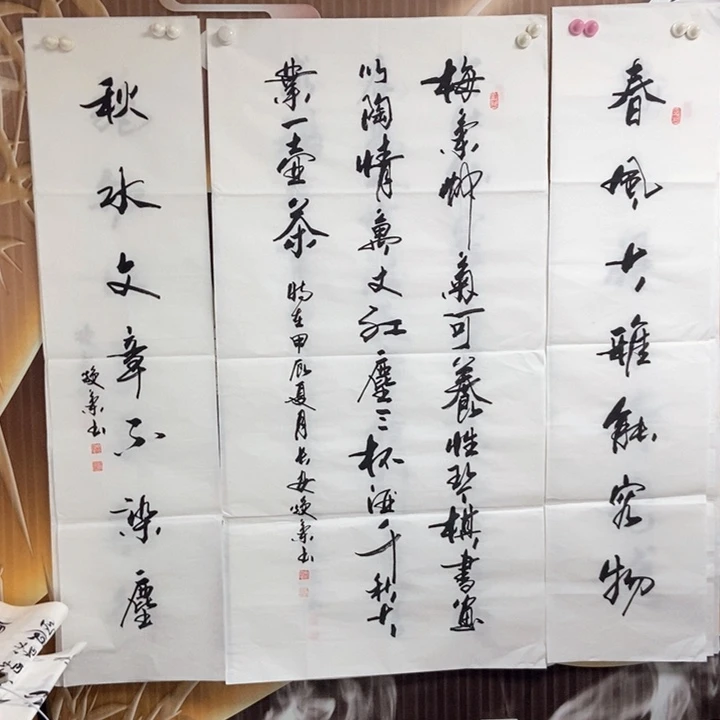 春風大雅能容物
梅蘭竹菊可養性琴棋書画
以陶情萬丈紅塵三杯酒千秋大
業一壺茶
時在甲辰夏月长安焕书
秋水文章不染塵
焕书